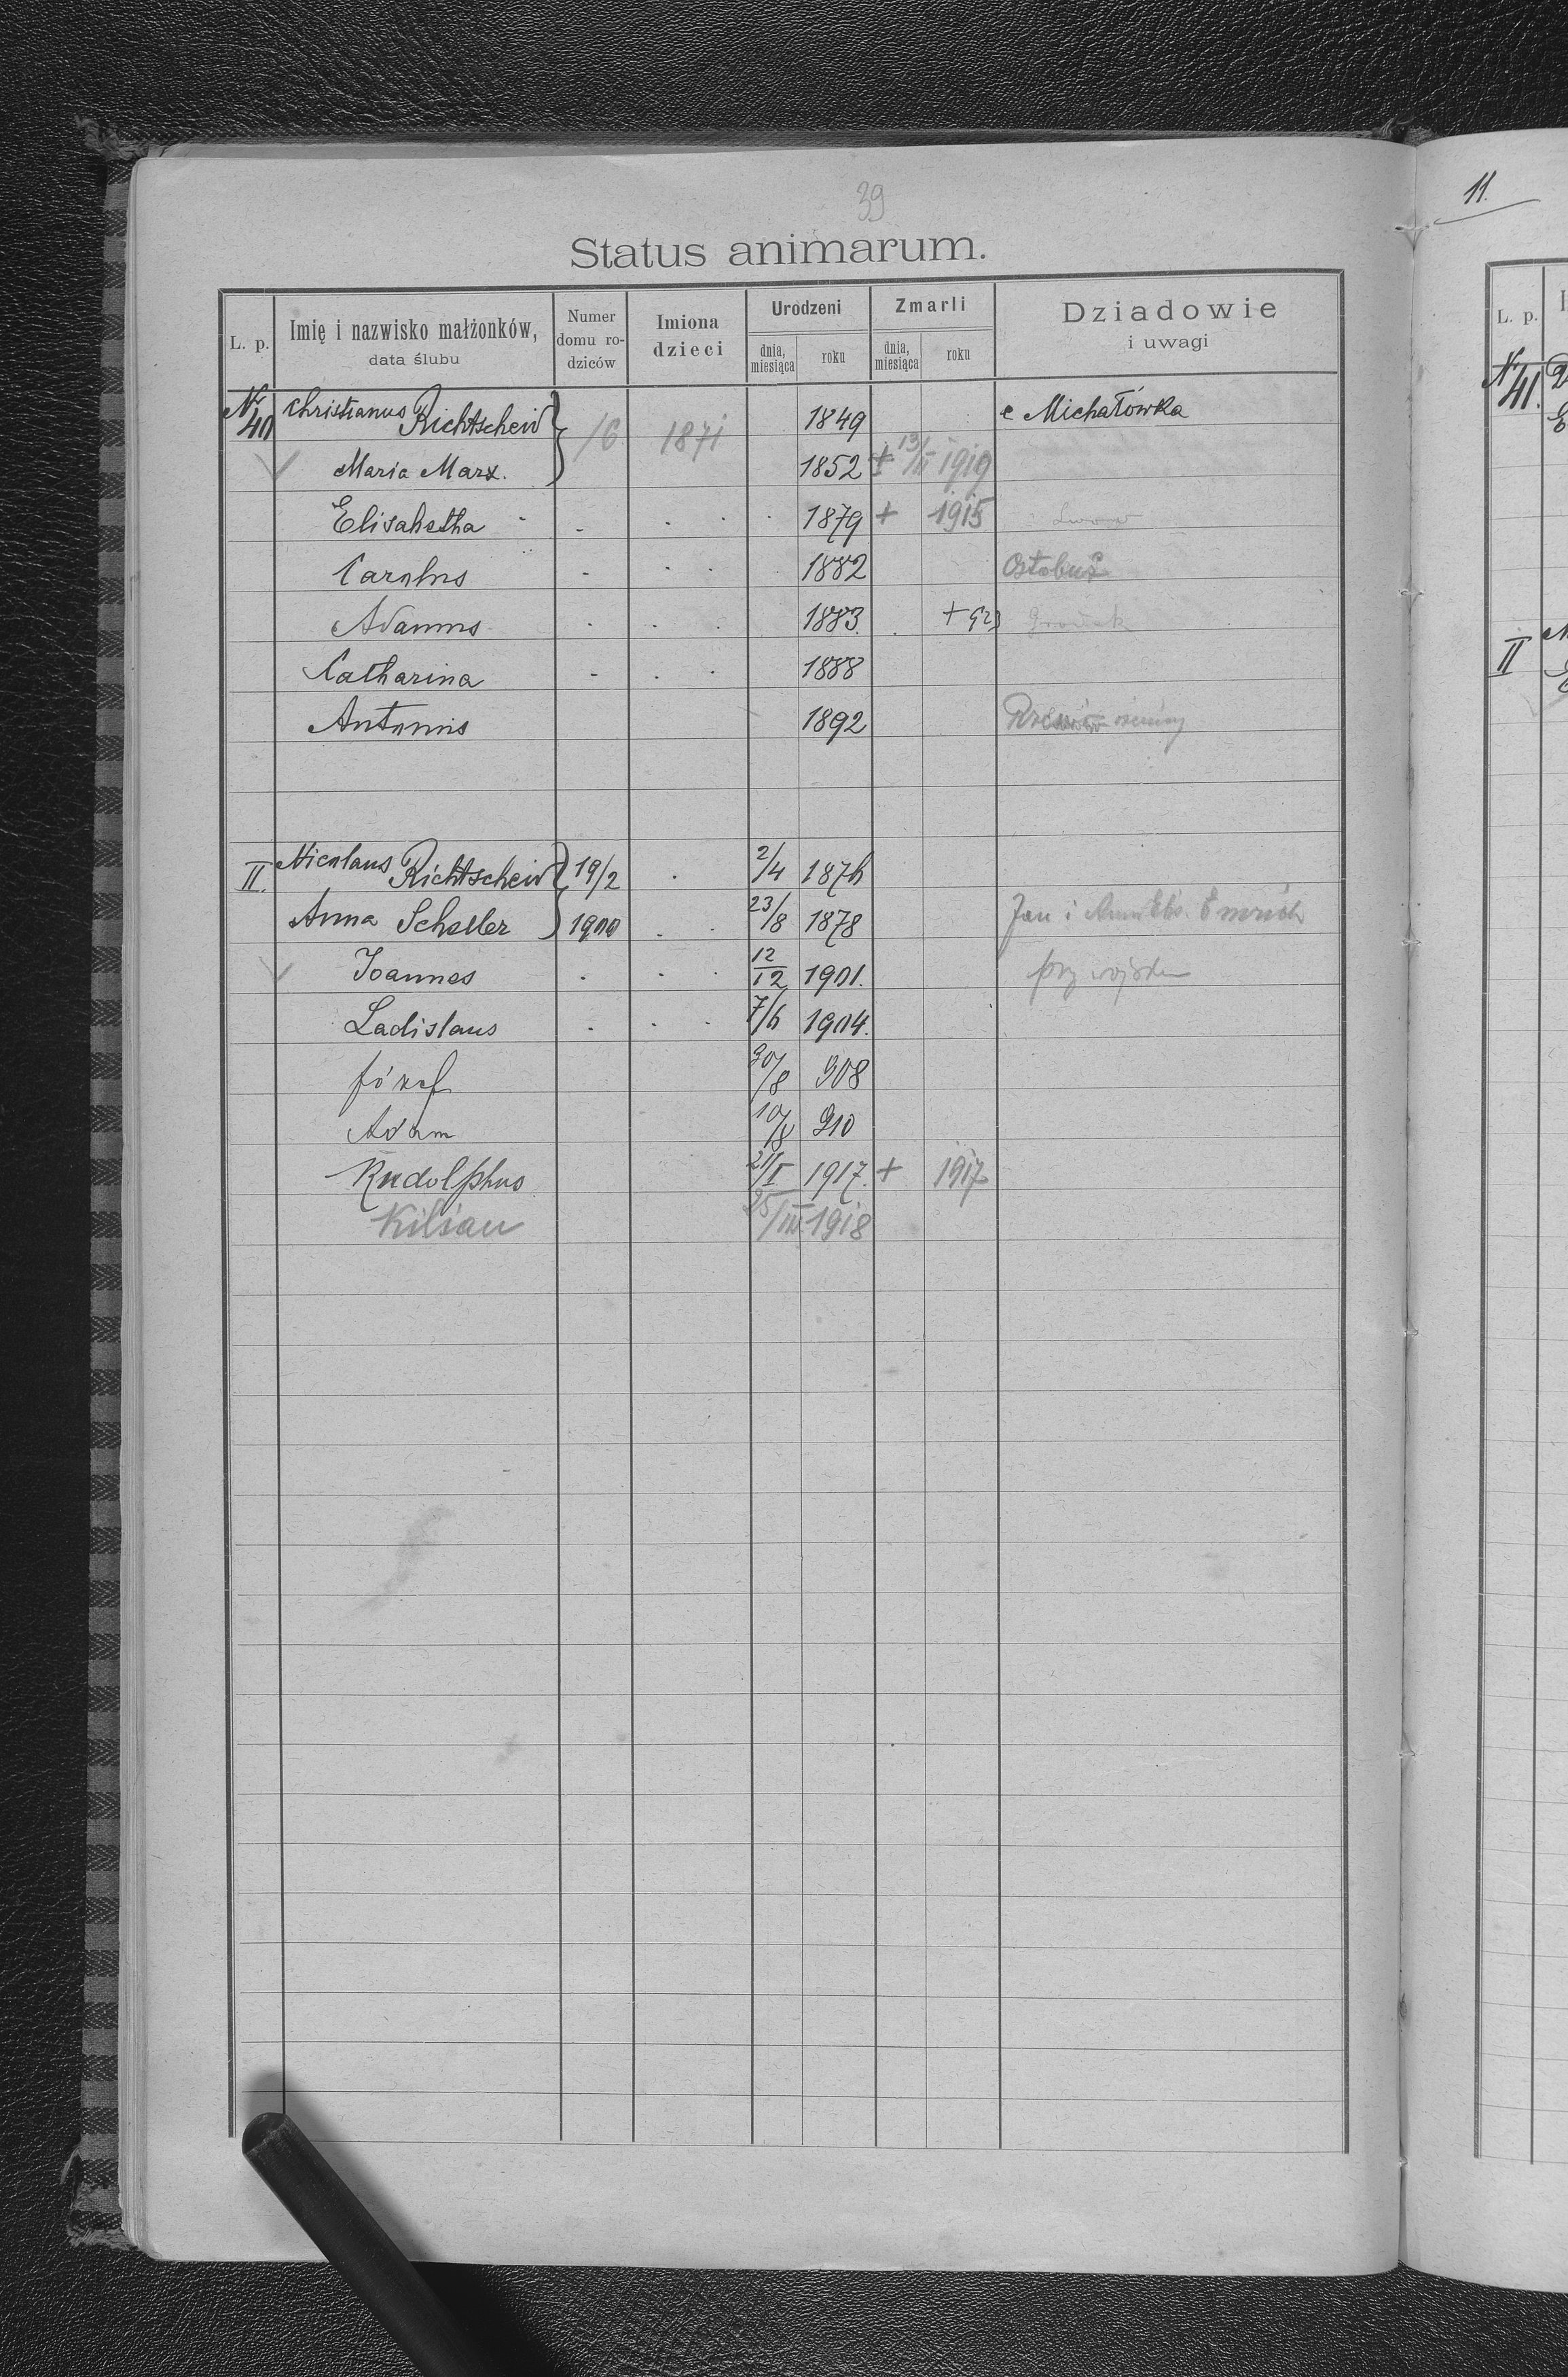 39
11.
Status animarum.
L. p. Imię i nazwisko małżonków, data ślubu Numer domu rodziców Imiona dzieci Urodzeni dnia, miesiąca roku Zmarli dnia, miesiąca roku Dziadowie i uwagi
Nr 40 Christianus Richtscheid 16 1871 1849 e Michałówka
Maria Marx. 1852 + 13/II 1919
Elisabetha 1879 + 1915 Lwow
Carolus 1882
Adamus 1883. + 923 Gródek
Catharina 1888
Antonius 1892
II. Nicolaus Richtscheid 19/2 2/4 1876
Anna Scheller 1900 23/8 1878 Jan i Anna Elis. Emrich
Joannes 12/12 1901. przy wojsku
Ladislaus 7/6 1904.
Józef 30/8 908
Adam 10/8 910
Rudolphus 21/I 1917. + 1917
Kilian 25/III 1918
L. p.
Nr 41.
II